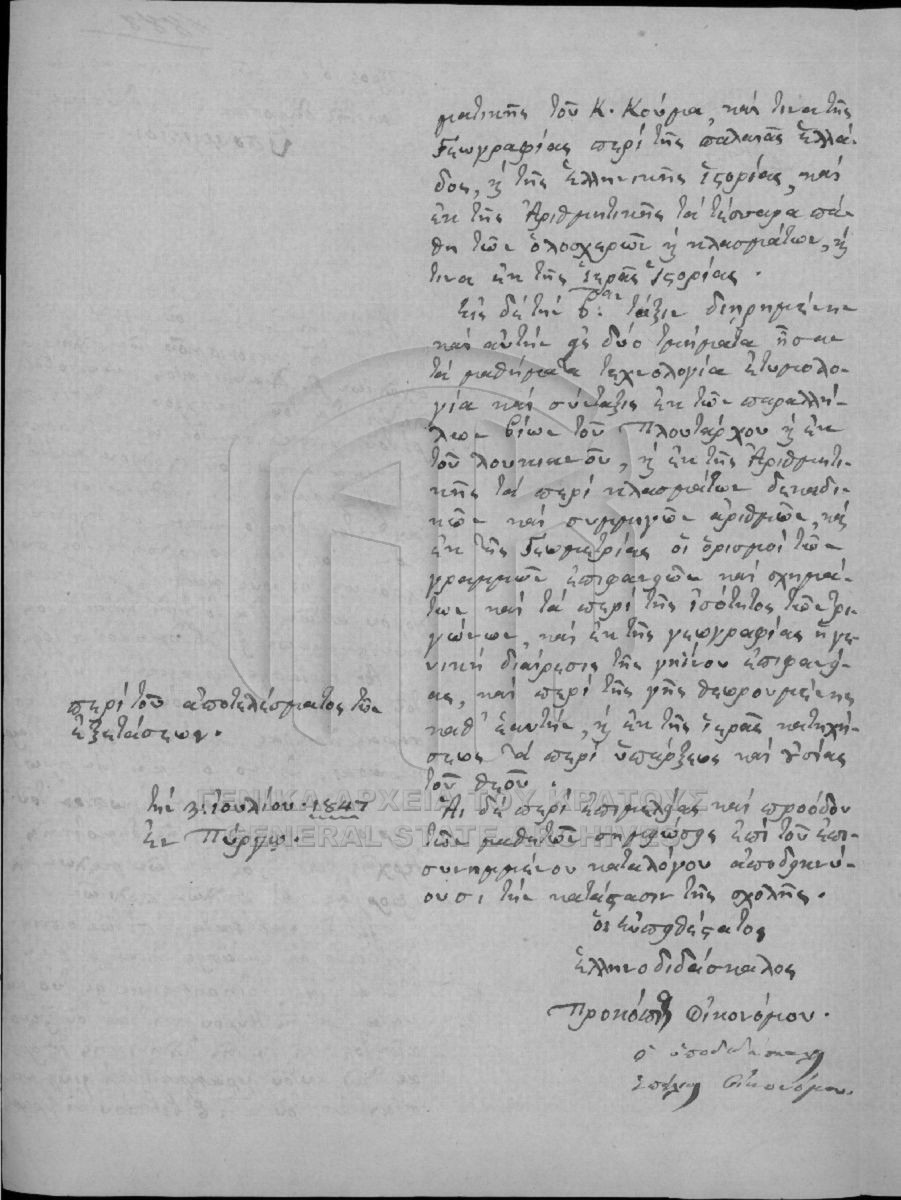 ματικῆς τοῦ Κ. Κούμα, καί τινα τῆς
Γεωγραφίας περὶ τῆς παλαιᾶς Ἑλλά-
δος, ἢ τῆς Ἑλληνικῆς Ἱστορίας, καὶ
ἐκ τῆς Ἀριθμητικῆς τὰ τέσσαρα πά-
θη τῶν ὁλοσχερῶν ἢ κλασμάτων, ἢ
τινα ἐκ τῆς Ἱερᾶς Ἱστορίας.
Εἰς δὲ τὴν β.αν τάξιν διῃρημένην
καὶ αὐτὴν εἰς δύο τμήματα ἦσαν
τὰ μαθήματα τεχνολογία ἐτυμολο-
γία καὶ σύνταξις ἐκ τῶν παραλλή-
λων βίων τοῦ Πλουτάρχου ἢ ἐκ
τοῦ Λουκιανοῦ, ἢ ἐκ τῆς Ἀριθμητι-
κῆς τὰ περὶ κλασμάτων δεκαδι-
κῶν καὶ συμμιγῶν ἀριθμῶν, καὶ
ἐκ τῆς Γεωμετρίας οἱ ὁρισμοὶ τῶν
γραμμῶν ἐπιφανειῶν καὶ σχημά-
των καὶ τὰ περὶ τῆς ἰσότητος τῶν τρι-
γώνων, καὶ ἐκ τῆς γεωγραφίας ἡ γε-
νικὴ διαίρεσις τῆς γηΐνου ἐπιφανεί-
ας, καὶ περὶ τῆς γῆς θεωρουμένης
καθ' ἑαυτήν, ἢ ἐκ τῆς ἱερᾶς κατηχή-
σεως τὰ περὶ ὑπάρξεως καὶ οὐσίας
τοῦ θεοῦ.
Αἱ δὲ περὶ ἐπιμελείας καὶ προόδου
τῶν μαθητῶν σημειώσεις ἐπὶ τοῦ ἐπι-
συνημμένου καταλόγου ἀποδεικνύ-
ουσι τὴν κατάστασιν τῆς σχολῆς.
περὶ τοῦ ἀποτελέσματος τῶν
ἐξετάσεων.
τὴν 3: ἰουλίου. 1847
Ἐν Πύργῳ.
ὁ εὐπειθέστατος
Ἑλληνοδιδάσκαλος
Προκόπιος Οἰκονόμου.
ὁ ὑποδιδάσκαλος
Οἰκονόμου.
ΓΕΝΙΚΑ ΑΡΧΕΙΑ ΤΟΥ ΚΡΑΤΟΥΣ
GENERAL STATE ARCHIVES